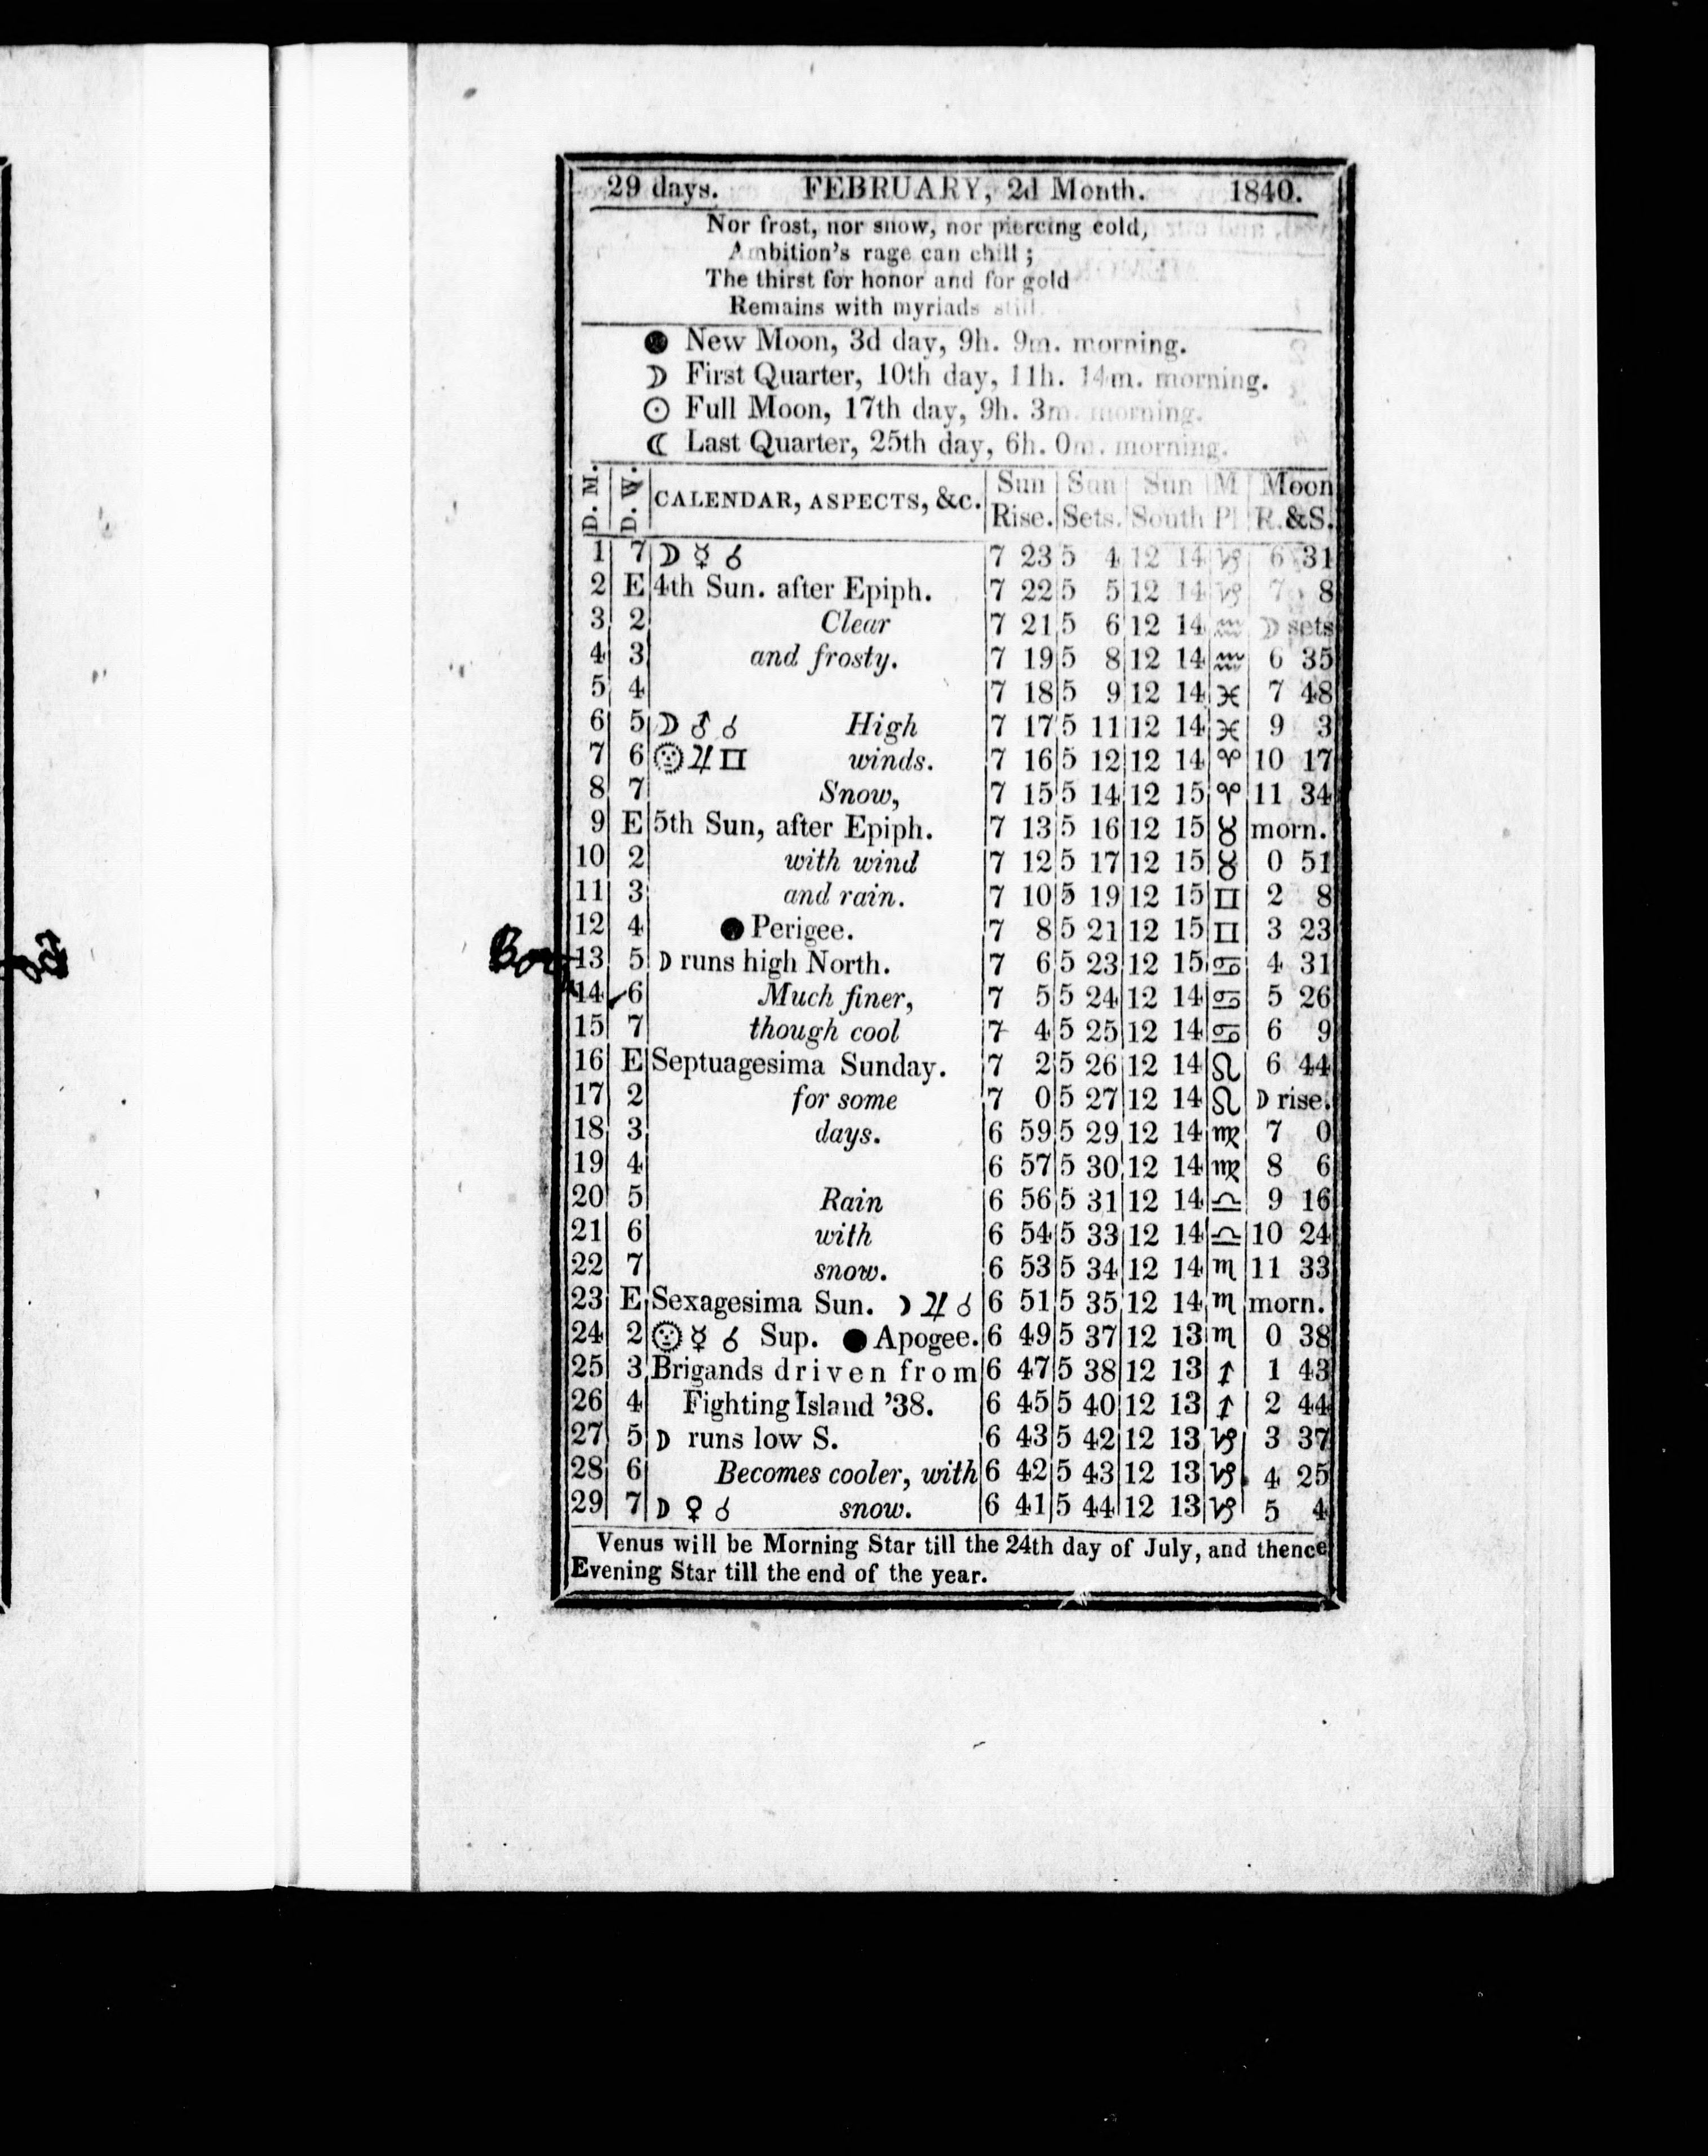 29 days. FEBRUARY, 2d Month. 1840.
Nor frost, nor snow, nor piercing cold,
Ambition's rage can chill;
The thirst for honor and for gold
Remains with myriads still.
● New Moon, 3d day, 9h. 9m. morning.
☽ First Quarter, 10th day, 11h. 14m. morning.
☉ Full Moon, 17th day, 9h. 3m. morning.
☾ Last Quarter, 25th day, 6h. 0m. morning.
D. M. D. W. CALENDAR, ASPECTS, &c. Sun Rise. Sun Sets. Sun South M Pl Moon R. &S.
1 7 ☽ ☿ ☌ 7 23 5 4 12 14 ♑ 6 31
2 E 4th Sun. after Epiph. 7 22 5 5 12 14 ♑ 7 8
3 2 Clear 7 21 5 6 12 14 ♒ ☽ sets
4 3 and frosty. 7 19 5 8 12 14 ♒ 6 35
5 4 7 18 5 9 12 14 ♓ 7 48
6 5 ☽ ♂ ☌ High 7 17 5 11 12 14 ♓ 9 3
7 6 ☉ ♃ ♊ winds. 7 16 5 12 12 14 ♈ 10 17
8 7 Snow, 7 15 5 14 12 15 ♈ 11 34
9 E 5th Sun, after Epiph. 7 13 5 16 12 15 ♉ morn.
10 2 with wind 7 12 5 17 12 15 ♉ 0 51
11 3 and rain. 7 10 5 19 12 15 ♊ 2 8
12 4 ● Perigee. 7 8 5 21 12 15 ♊ 3 23
13 5 ☽ runs high North. 7 6 5 23 12 15 ♋ 4 31
14 6 Much finer, 7 5 5 24 12 14 ♋ 5 26
15 7 though cool 7 4 5 25 12 14 ♋ 6 9
16 E Septuagesima Sunday. 7 2 5 26 12 14 ♌ 6 44
17 2 for some 7 0 5 27 12 14 ♌ ☽ rise.
18 3 days. 6 59 5 29 12 14 ♍ 7 0
19 4 6 57 5 30 12 14 ♍ 8 6
20 5 Rain 6 56 5 31 12 14 ♎ 9 16
21 6 with 6 54 5 33 12 14 ♎ 10 24
22 7 snow. 6 53 5 34 12 14 ♏ 11 33
23 E Sexagesima Sun. ☽ ♃ ☌ 6 51 5 35 12 14 ♏ morn.
24 2 ☉ ☿ ☌ Sup. ● Apogee. 6 49 5 37 12 13 ♏ 0 38
25 3 Brigands driven from 6 47 5 38 12 13 ♐ 1 43
26 4 Fighting Island '38. 6 45 5 40 12 13 ♐ 2 44
27 5 ☽ runs low S. 6 43 5 42 12 13 ♑ 3 37
28 6 Becomes cooler, with 6 42 5 43 12 13 ♑ 4 25
29 7 ☽ ♀ ☌ snow. 6 41 5 44 12 13 ♑ 5 4
Venus will be Morning Star till the 24th day of July, and thence
Evening Star till the end of the year.